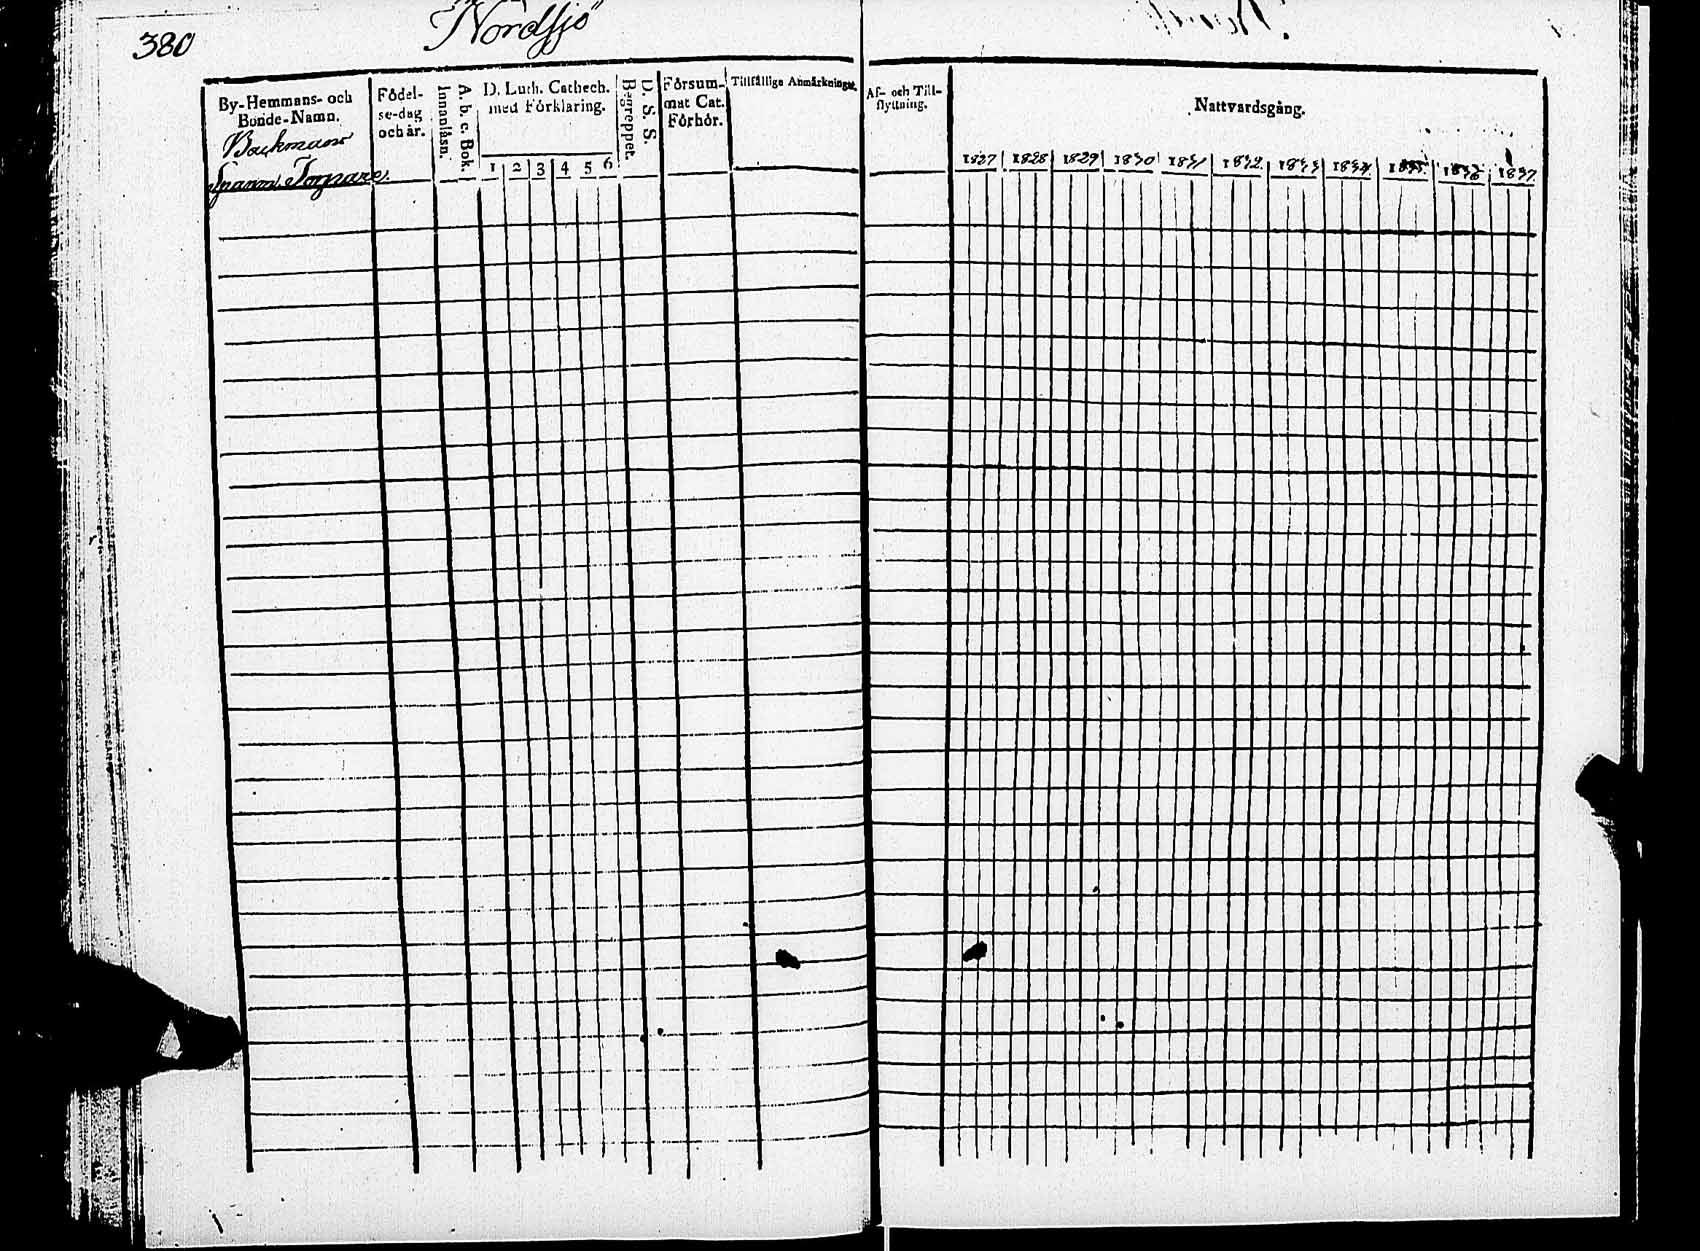 380
Nordsjö
By-Hemmans- och
Bonde-Namn.
Backmans
Torpare
Födel-
se-dag
och år.
A. b. c. Bok.
Innanläsn.
D. Luth. Cathech.
med Förklaring.
1 2 3 4 5 6
D. S. S.
Begreppet.
Försum-
mat Cat.
Förhör.
Tillfällige Anmärkningar.
Af- och Till-
flyttning.
Nattvardsgång.
1827 1828 1829 1830 1831 1832 1833 1834 1835 1836 1837